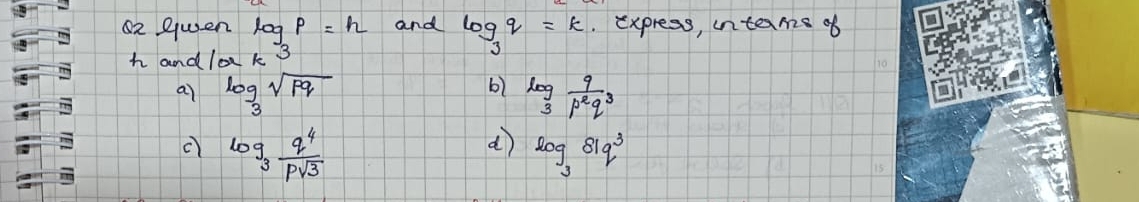 Q2 Given log₃ P = h and log₃ q = k. Express, in terms of
h and/or k
a) log₃ √pq b) log₃ 9/(p²q³)
c) log₃ q⁴/(p√3) d) log₃ 81q³
10
15